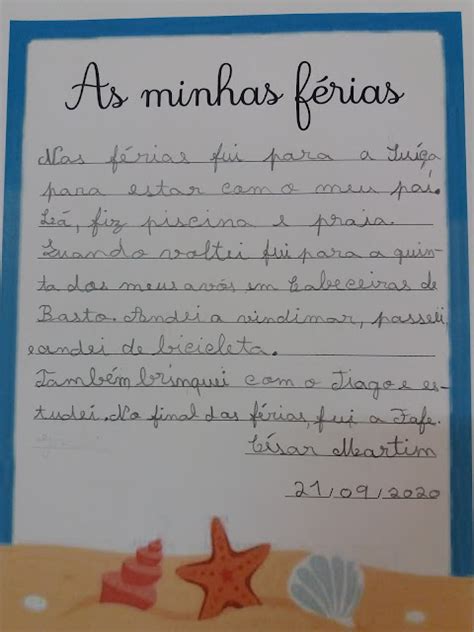 As minhas férias
Nas férias fui para a Suíça
para estar com o meu pai.
Lá, fiz piscina e praia.
Quando voltei fui para a quin-
ta dos meus avós em Cabeceiras de
Basto. Andei a vindimar, passeei,
e andei de bicicleta.
Também brinquei com o Tiago e es-
tudei. No final das férias, fui a Fafe.
César Martim
21/09/2020